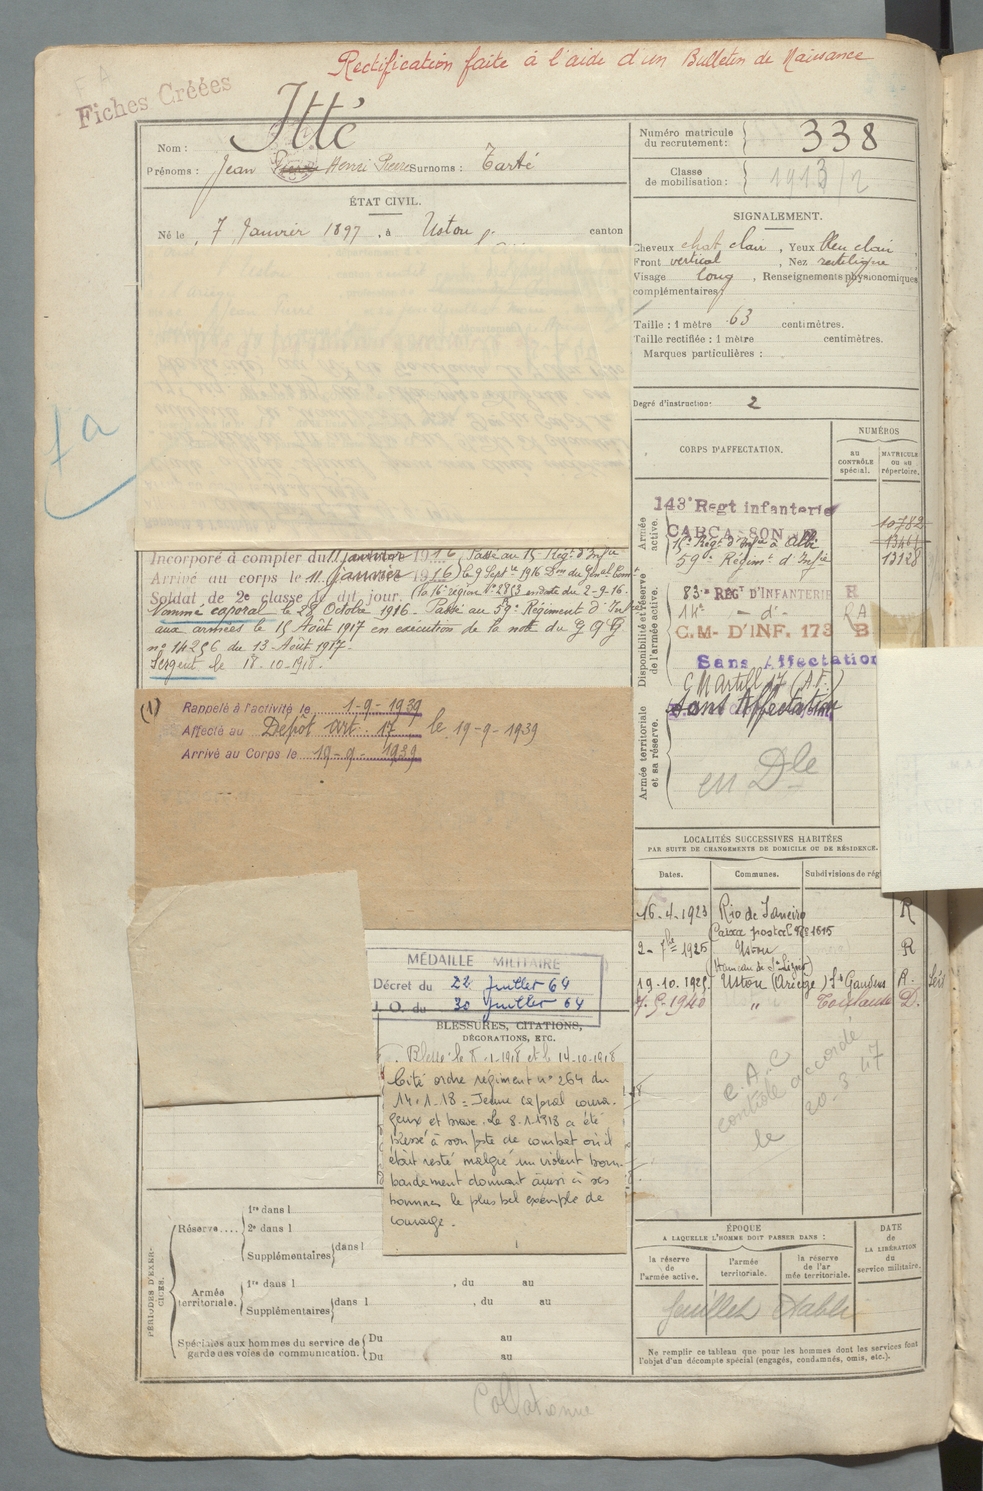 Rectification faite à l'aide d'un Bulletin de Naissance
F A
Fiches Créées
Nom : Itté
Prénoms : Jean Pierre Henri Pierre Surnoms : Tarté
Numéro matricule du recrutement : 338
Classe de mobilisation : 1913/2
ÉTAT CIVIL.
Né le 7 Janvier 1897, à Ustou canton
SIGNALEMENT.
Cheveux chat. clair, Yeux bleu clair
Front vertical, Nez rectiligne
Visage long, Renseignements physionomiques
complémentaires :
Taille : 1 mètre 63 centimètres.
Taille rectifiée : 1 mètre centimètres.
Marques particulières :
Degré d'instruction : 2
CORPS D'AFFECTATION.
NUMÉROS
AU CONTRÔLE spécial.
MATRICULE OU AU répertoire.
Armée active.
143e Regt infanterie
CARCASSONNE
10782
15e Régt d'Infie à Albi
13461
59e Régiment d'Infie
13128
Disponibilité et réserve de l'armée active.
83e REGt D'INFANTERIE R
14e - d° - RA
C.M- D'INF. 173 B
Sans Affectation
C M Artill 17 (A.F.)
Armée territoriale et sa réserve.
Sans Affectation
en Dle
fa
Incorporé à compter du 11 janvier 1916, Passé au 15e Régt d'Infie
Arrivé au corps le 11 janvier 1916) le 9 Septbre 1916
Soldat de 2e classe le dit jour. (la 16e région N° 2853 en date du 2-9-16.
Nommé caporal le 28 Octobre 1916 - Passé au 59e Régiment d'Infie
aux armées le 15 Août 1917 en exécution de la note du G Q G
n° 14256 du 13 Août 1917.
Sergent le 18-10-1918.
(1) Rappelé à l'activité le 1-9-1939
Affecté au Dépôt art. 17 le 19-9-1939
Arrivé au Corps le 19-9-1939
LOCALITÉS SUCCESSIVES HABITÉES
PAR SUITE DE CHANGEMENTS DE DOMICILE OU DE RÉSIDENCE.
Dates. Communes. Subdivisions de rég
16-4-1923 Rio de Janeiro R
(Caixa postal
2-7bre 1925 Ustou R
19.10.1925 Ustou (Ariège) St Gaudens R.
7-5-1940 " Toulouse D.
e.A.C
contrôle accordé
le 20-3 47
MÉDAILLE MILITAIRE
Décret du 22 Juillet 64
J. O. du 30 Juillet 64
BLESSURES, CITATIONS,
DÉCORATIONS, ETC.
Blessé le 8-1-1918 et le 14-10-1918
Cité ordre régiment n° 264 du
14-1-18 = Jeune caporal coura-
geux et brave. Le 8-1-1918 a été
blessé à son poste de combat où il
était resté malgré un violent bom-
bardement donnant ainsi à ses
hommes le plus bel exemple de
courage.
PÉRIODES D'EXERCICES.
Réserve....
1re dans l
2e dans l
Supplémentaires dans l
Armée territoriale.
1re dans l , du au
Supplémentaires dans l , du au
Spéciales aux hommes du service de garde des voies de communication.
Du au
Du au
ÉPOQUE
A LAQUELLE L'HOMME DOIT PASSER DANS :
la réserve de l'armée active.
l'armée territoriale.
la réserve de l'armée territoriale.
DATE de LA LIBÉRATION du service militaire.
feuillet établi
Ne remplir ce tableau que pour les hommes dont les services font
l'objet d'un décompte spécial (engagés, condamnés, omis, etc.).
Collationné